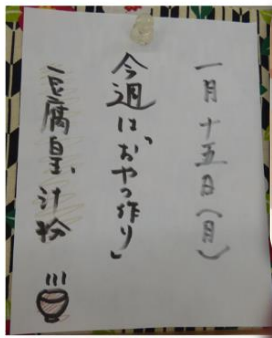 一月十五日(月)
今週は「おやつ作り」
豆腐白玉汁粉